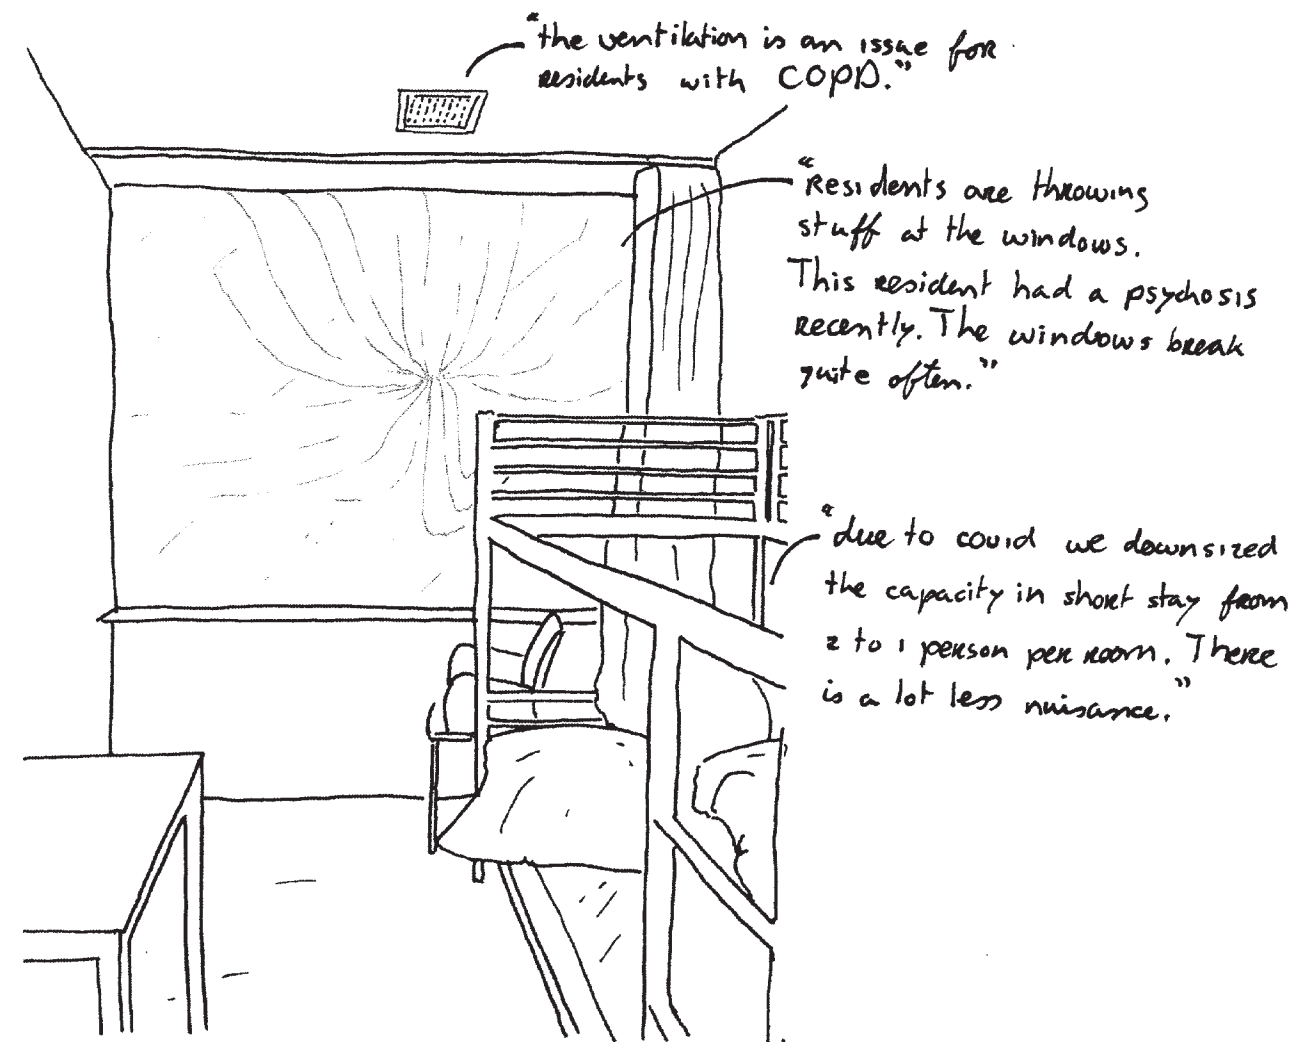 “the ventilation is an issue for
residents with COPD.”
“Residents are throwing
stuff at the windows.
This resident had a psychosis
recently. The windows break
quite often.”
“due to covid we downsized
the capacity in short stay from
2 to 1 person per room. There
is a lot less nuisance.”